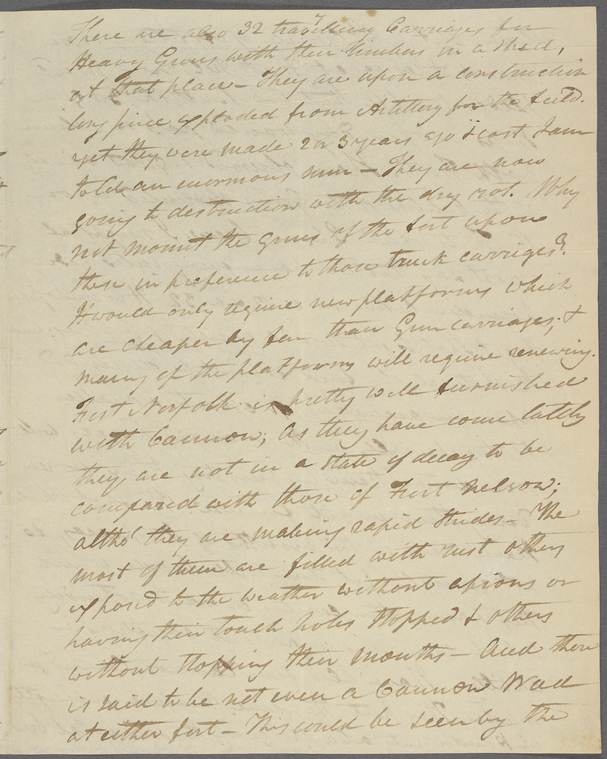 There are also 32 travelling Carriages for
Heavy Guns with their limbers in a shed,
at that place — They are upon a construction
long since exploded from Artillery for the field.
yet they were made 2 or 3 years ago & cost I am
told an enormous sum — They are now
going to destruction with the dry rot. Why
not mount the Guns of the fort upon
these in preference to those truck carriges?
It would only require new platforms which
are cheaper by far than Gun carriages; &
many of the platforms will require renewing.
Fort Norfolk is pretty well furnished
with Cannon; As they have come lately
they are not in a state of decay to be
compared with those of Fort Nelson;
altho' they are making rapid strides — The
most of them are filled with rust others
exposed to the weather without aprons or
having their touch holes stopped & others
without stopping their mouths — And there
is said to be not even a Cannon Wad
at either fort — This could be seen by the